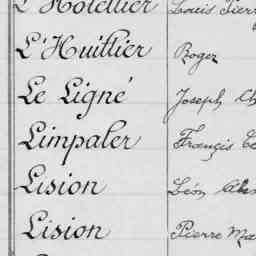 L'Hotellier Louis Pierr
L'Huillier Roger
Le Ligné Joseph Ch
Limpaler François
Lision Léon
Lision Pierre Ma